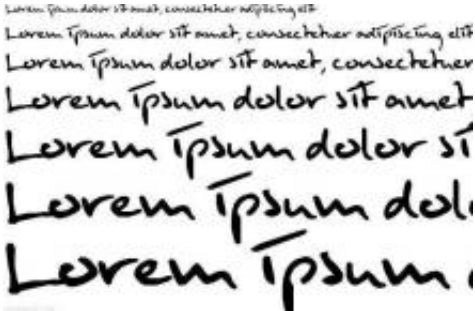 Lorem ipsum dolor sit amet, consectetuer adipiscing elit
Lorem ipsum dolor sit amet, consectetuer adipiscing elit
Lorem ipsum dolor sit amet, consectetuer
Lorem ipsum dolor sit amet
Lorem ipsum dolor si
Lorem ipsum dolo
Lorem ipsum